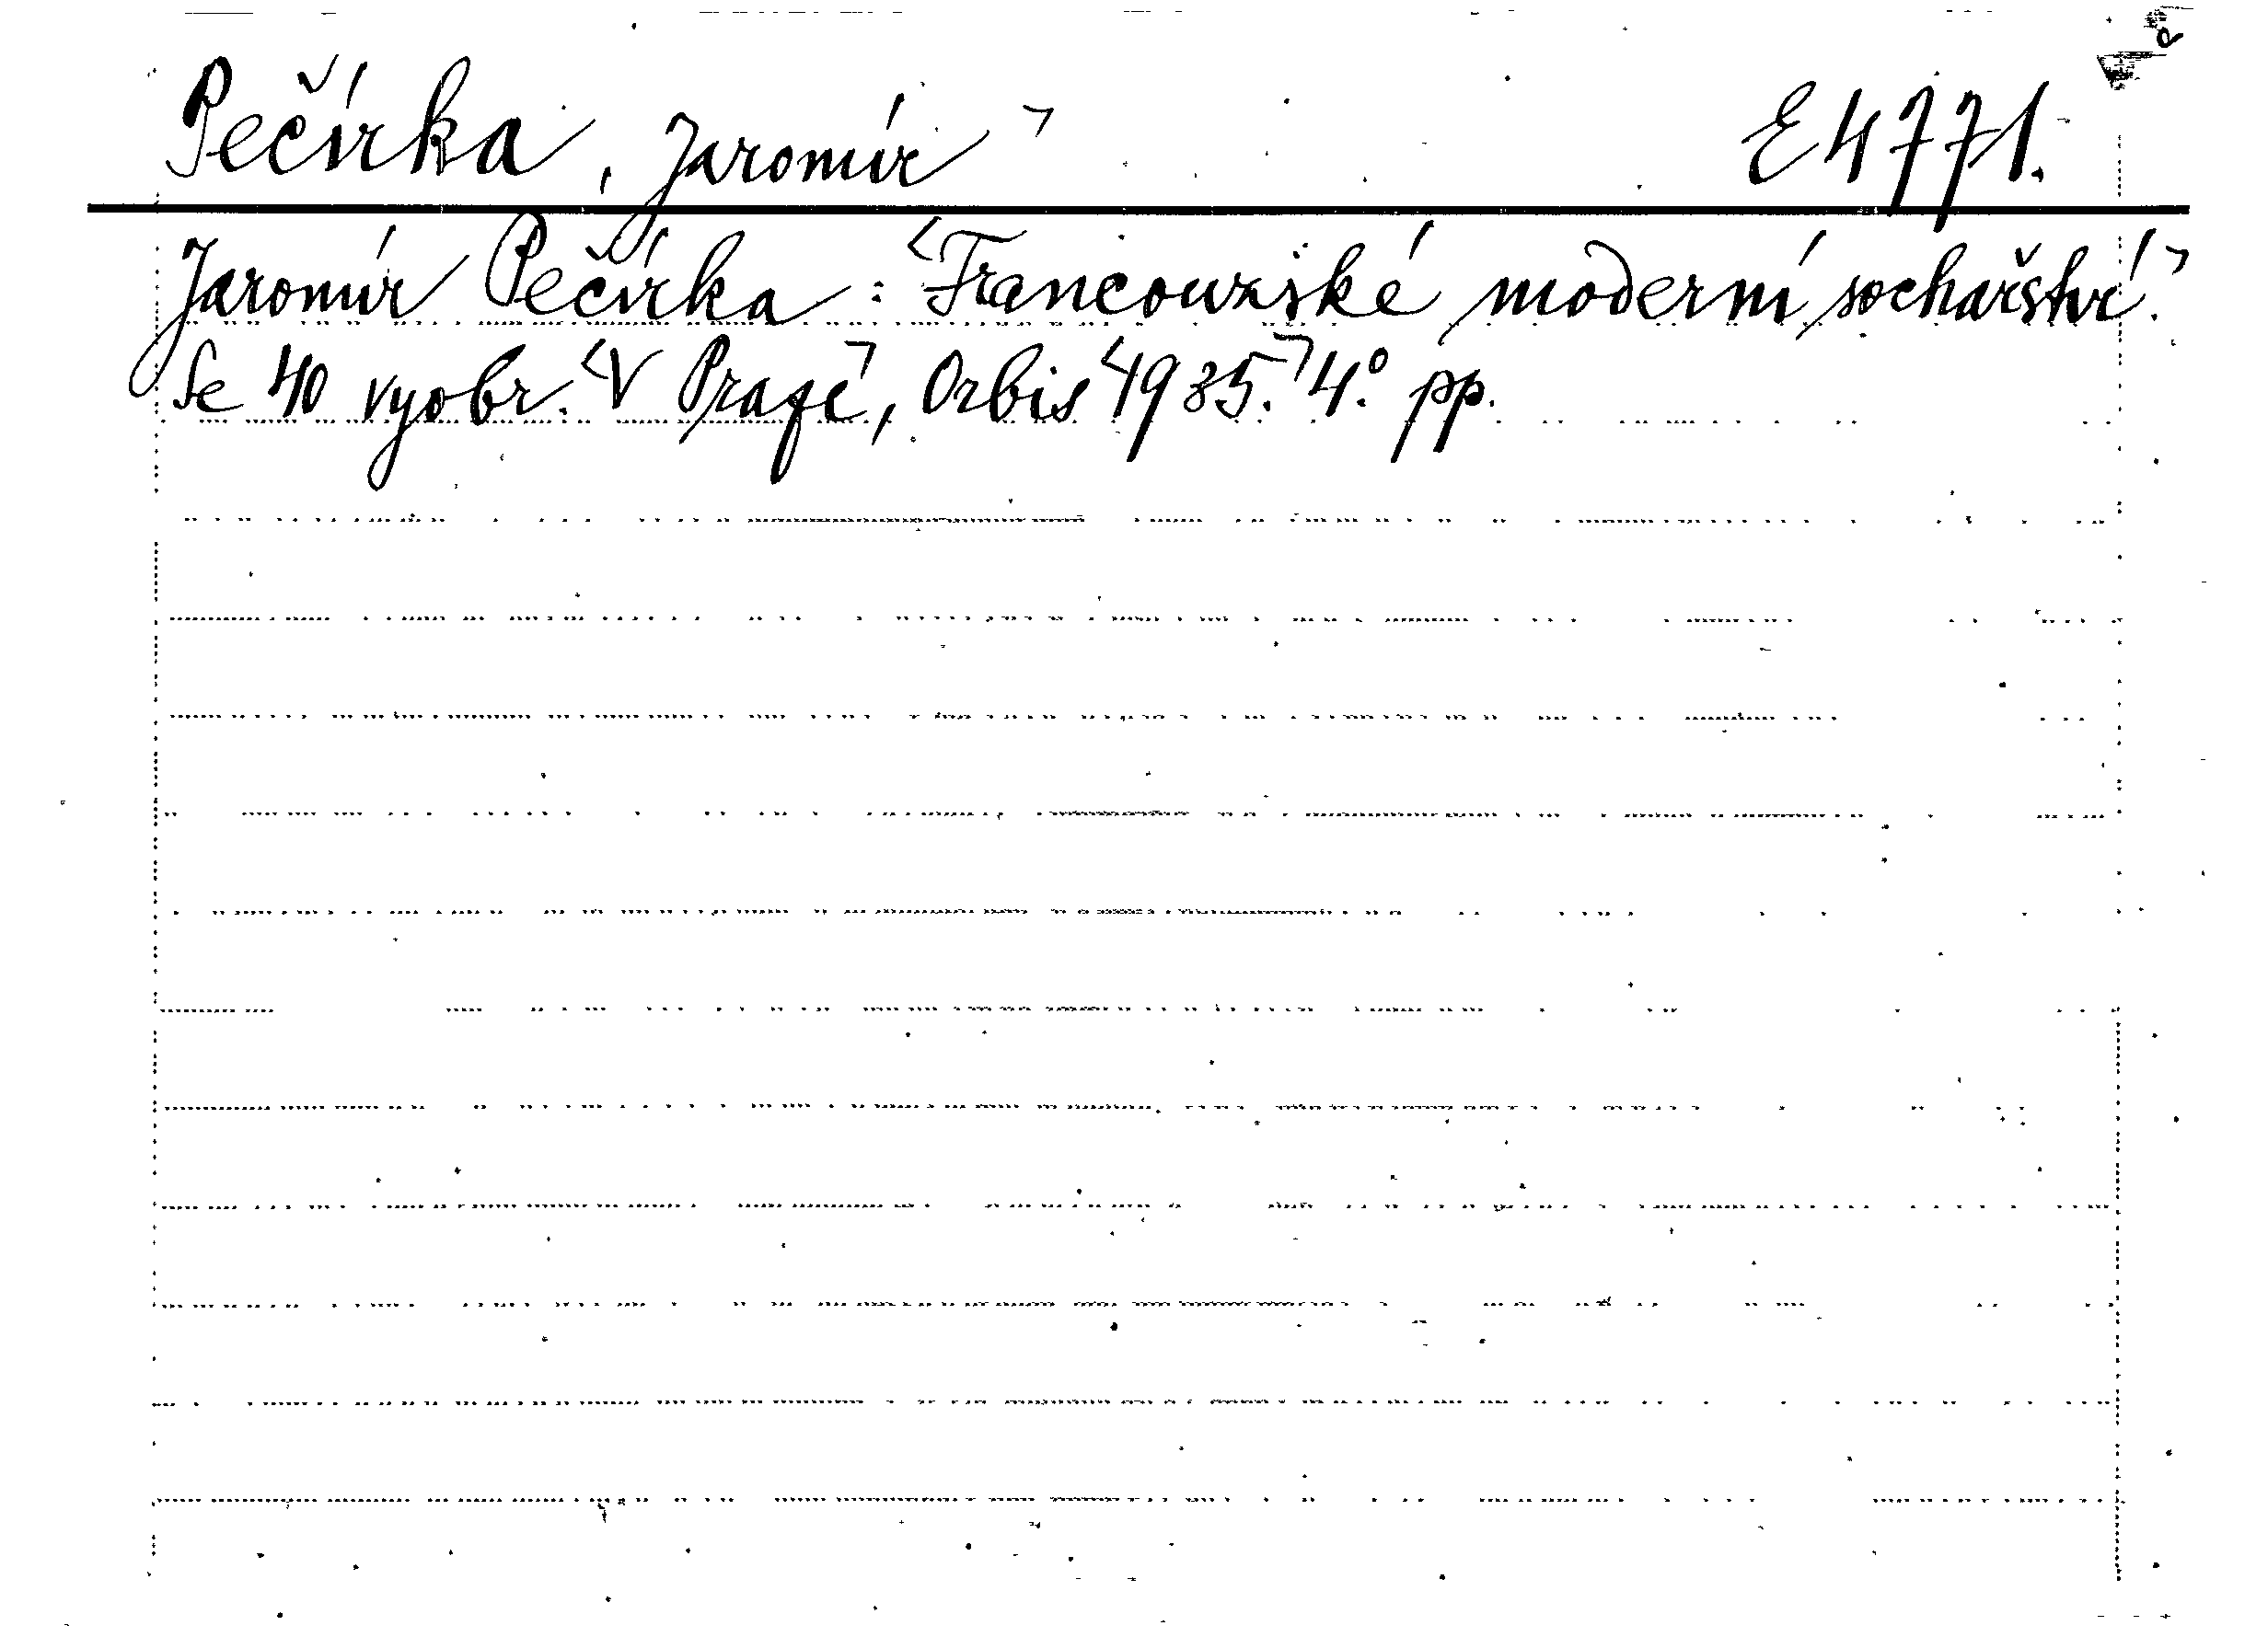 Pečírka, Jaromír E 4771.
Jaromír Pečírka: Francouzské moderní sochařství.
Se 40 vyobr. V Praze, Orbis 1935. 4.° pp.